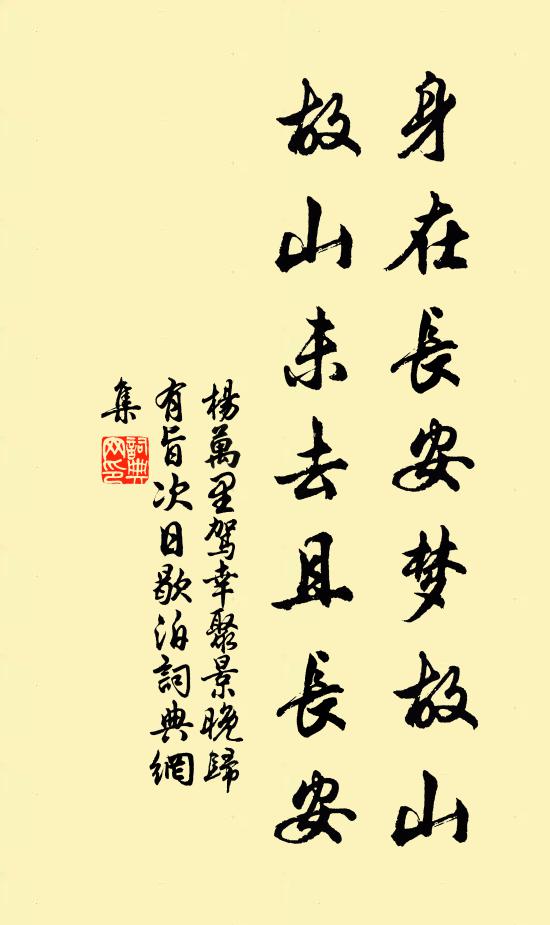 身在長安梦故山
故山未去且長安
楊萬里駕幸聚景晚歸
有旨次日歇泊詞典網
集
詞典
网印